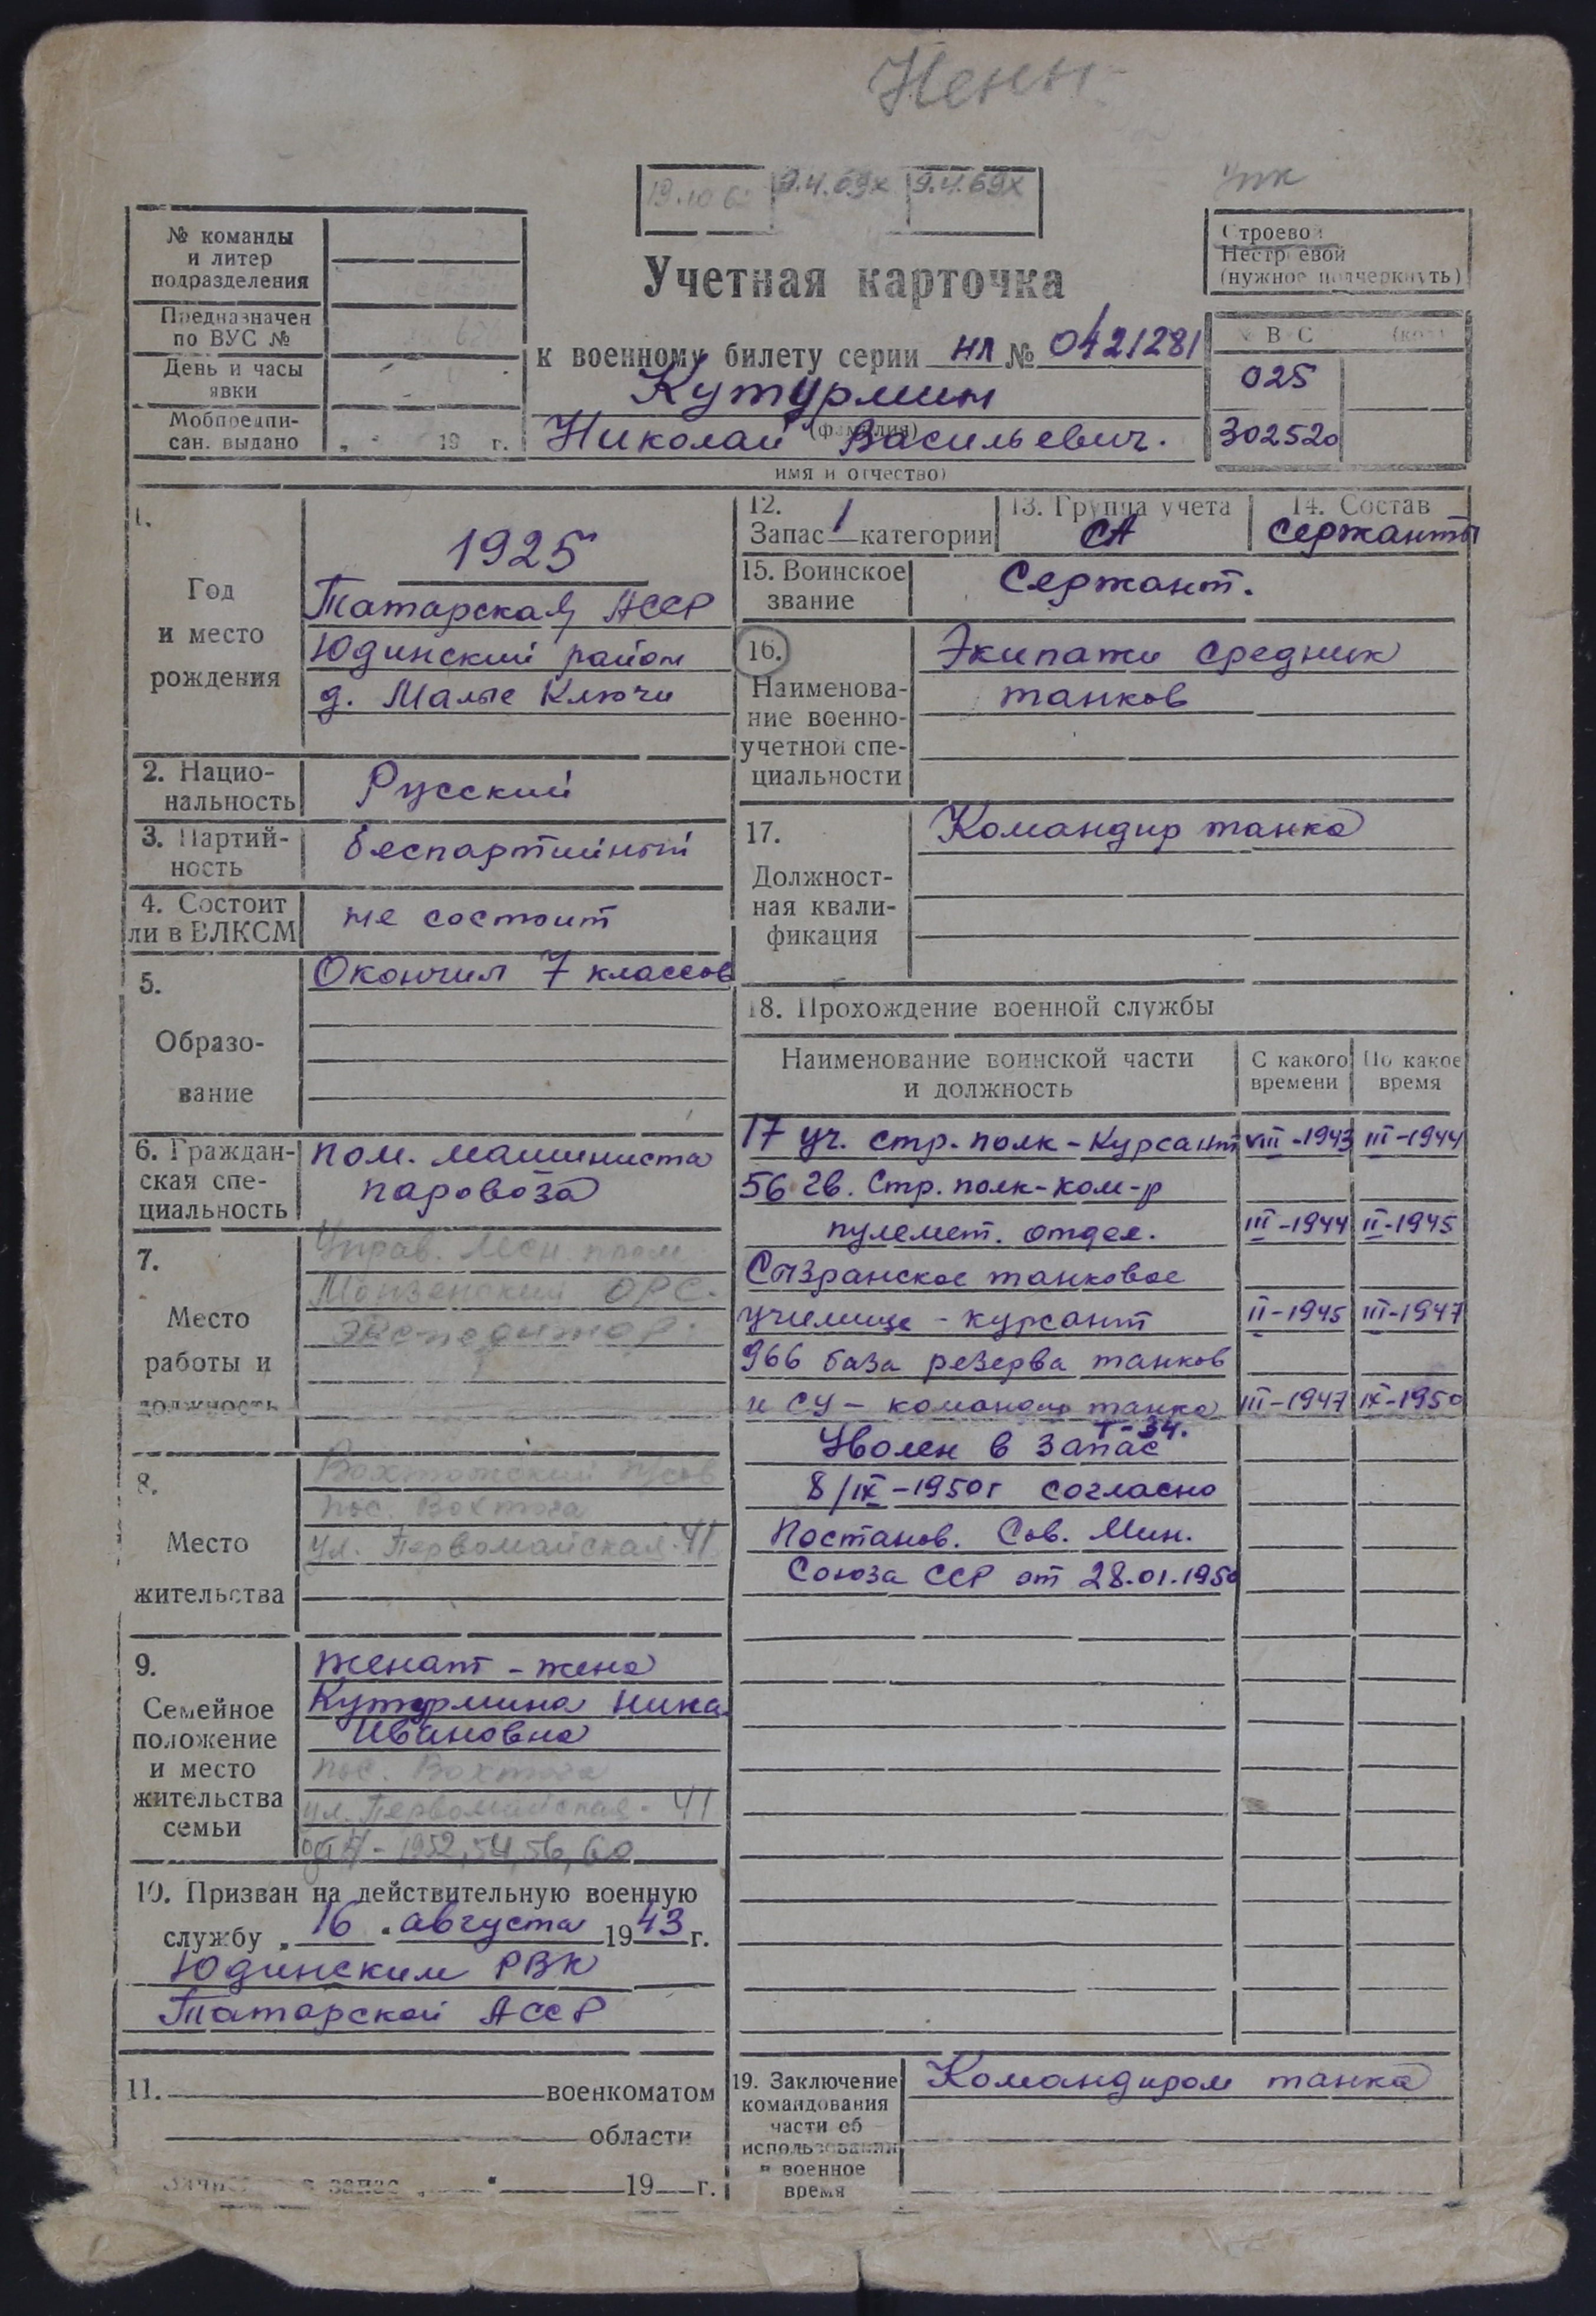 Ненн
19.10.6
9.4.69х
9.4.69х
упк
№ команды
и литер
подразделения
Предназначен
по ВУС №
День и часы
явки
Мобпредпи-
сан. выдано „ " 19 г.
Учетная карточка
к военному билету серии НЛ № 0421281
Кутурмин
(фамилия)
Николай Васильевич.
имя и отчество)
Строевой
Нестроевой
(нужное подчеркнуть)
ВС (код)
025
302520
1.
Год
и место
рождения
1925
Татарская АССР
Юдинский район
д. Малые Ключи
2. Нацио-
нальность
Русский
3. Партий-
ность
беспартийный
4. Состоит
ли в ВЛКСМ
не состоит
5.
Образо-
вание
Окончил 7 классов
6. Граждан-
ская спе-
циальность
пом. машиниста
паровоза
7.
Место
работы и
должность
Управ. Лесн. пром
Монзенский ОРС.
Экспедитор.
8.
Место
жительства
Вохтожский п/сов
пос. Вохтога
ул. Первомайская 41
9.
Семейное
положение
и место
жительства
семьи
женат - жена
Кутурмина Нина
Ивановна
пос. Вохтога
ул. Первомайская. 41
- 1952, 54, 56, 60
10. Призван на действительную военную
службу „16" августа 1943 г.
Юдинским РВК
Татарской АССР
11. военкоматом
области
Зачислен в запас „ " 19 г.
12.
Запас 1 категории
13. Группа учета
СА
14. Состав
сержанты
15. Воинское
звание
Сержант.
16.
Наименова-
ние военно-
учетной спе-
циальности
Экипажи средних
танков
17.
Должност-
ная квали-
фикация
Командир танка
18. Прохождение военной службы
Наименование воинской части
и должность
С какого
времени
По какое
время
17 уч. стр. полк - Курсант VIII-1943 III-1944
56 гв. Стр. полк - ком-р
пулемет. отдел. III-1944 II-1945
Сызранское танковое
училище - курсант II-1945 III-1947
966 база резерва танков
и СУ - командир танка III-1947 IX-1950
Т-34.
Уволен в запас
8/IX-1950г согласно
Постанов. Сов. Мин.
Союза ССР от 28.01.1950
19. Заключение
командования
части об
использовании
в военное
время
Командиром танка